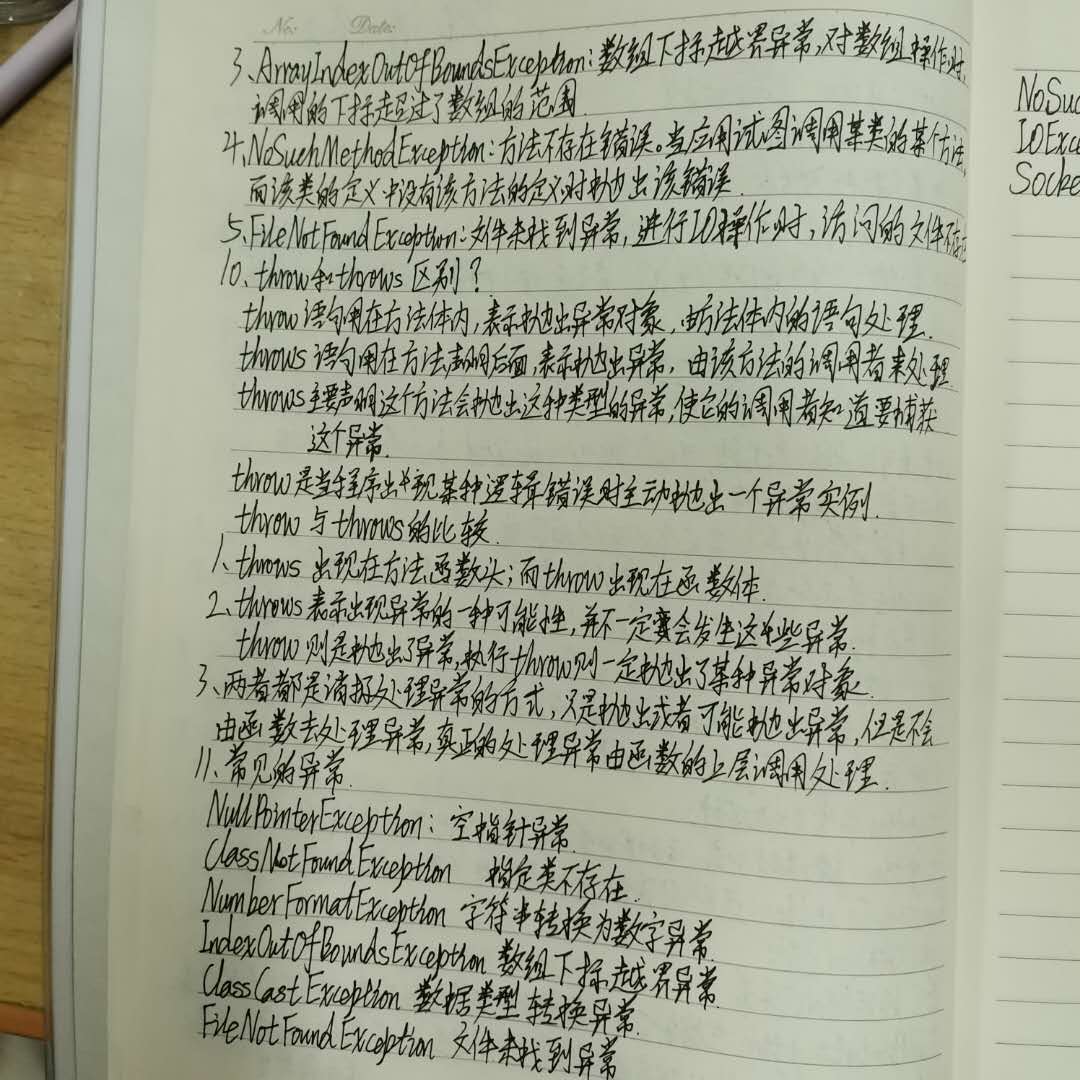 No:    Date:
3、ArrayIndexOutOfBoundsException:数组下标越界异常,对数组操作时,
调用的下标超过了数组的范围.
4、NoSuchMethodException:方法不存在错误。当应用试图调用某类的某个方法,
而该类的定义中没有该方法的定义时抛出该错误.
5、FileNotFoundException:文件未找到异常,进行IO操作时,访问的文件不存在
10、throw和throws区别?
throw语句用在方法体内,表示抛出异常对象,由方法体内的语句处理.
throws语句用在方法声明后面,表示抛出异常,由该方法的调用者来处理.
throws主要声明这个方法会抛出这种类型的异常,使它的调用者知道要捕获
这个异常.
throw是当程序出现某种逻辑错误时主动抛出一个异常实例.
throw与throws的比较.
1、throws出现在方法函数头;而throw出现在函数体.
2、throws表示出现异常的一种可能性,并不一定会发生这些异常.
throw则是抛出了异常,执行throw则一定抛出了某种异常对象.
3、两者都是消极处理异常的方式,只是抛出或者可能抛出异常,但是不会
由函数去处理异常,真正的处理异常由函数的上层调用处理.
11、常见的异常.
NullPointerException:空指针异常.
ClassNotFoundException 指定类不存在.
NumberFormatException 字符串转换为数字异常.
IndexOutOfBoundsException 数组下标越界异常.
ClassCastException 数据类型转换异常.
FileNotFoundException 文件未找到异常
NoSuc
IOExce
Socke